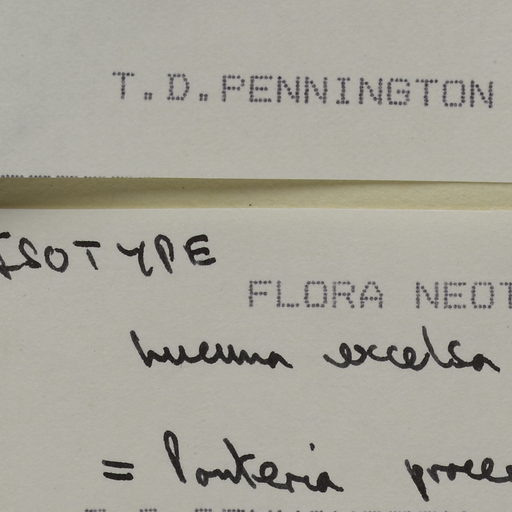 T.D.PENNINGTON
ISOTYPE
FLORA NEOT
Lucuma excelsa
= Pouteria procer